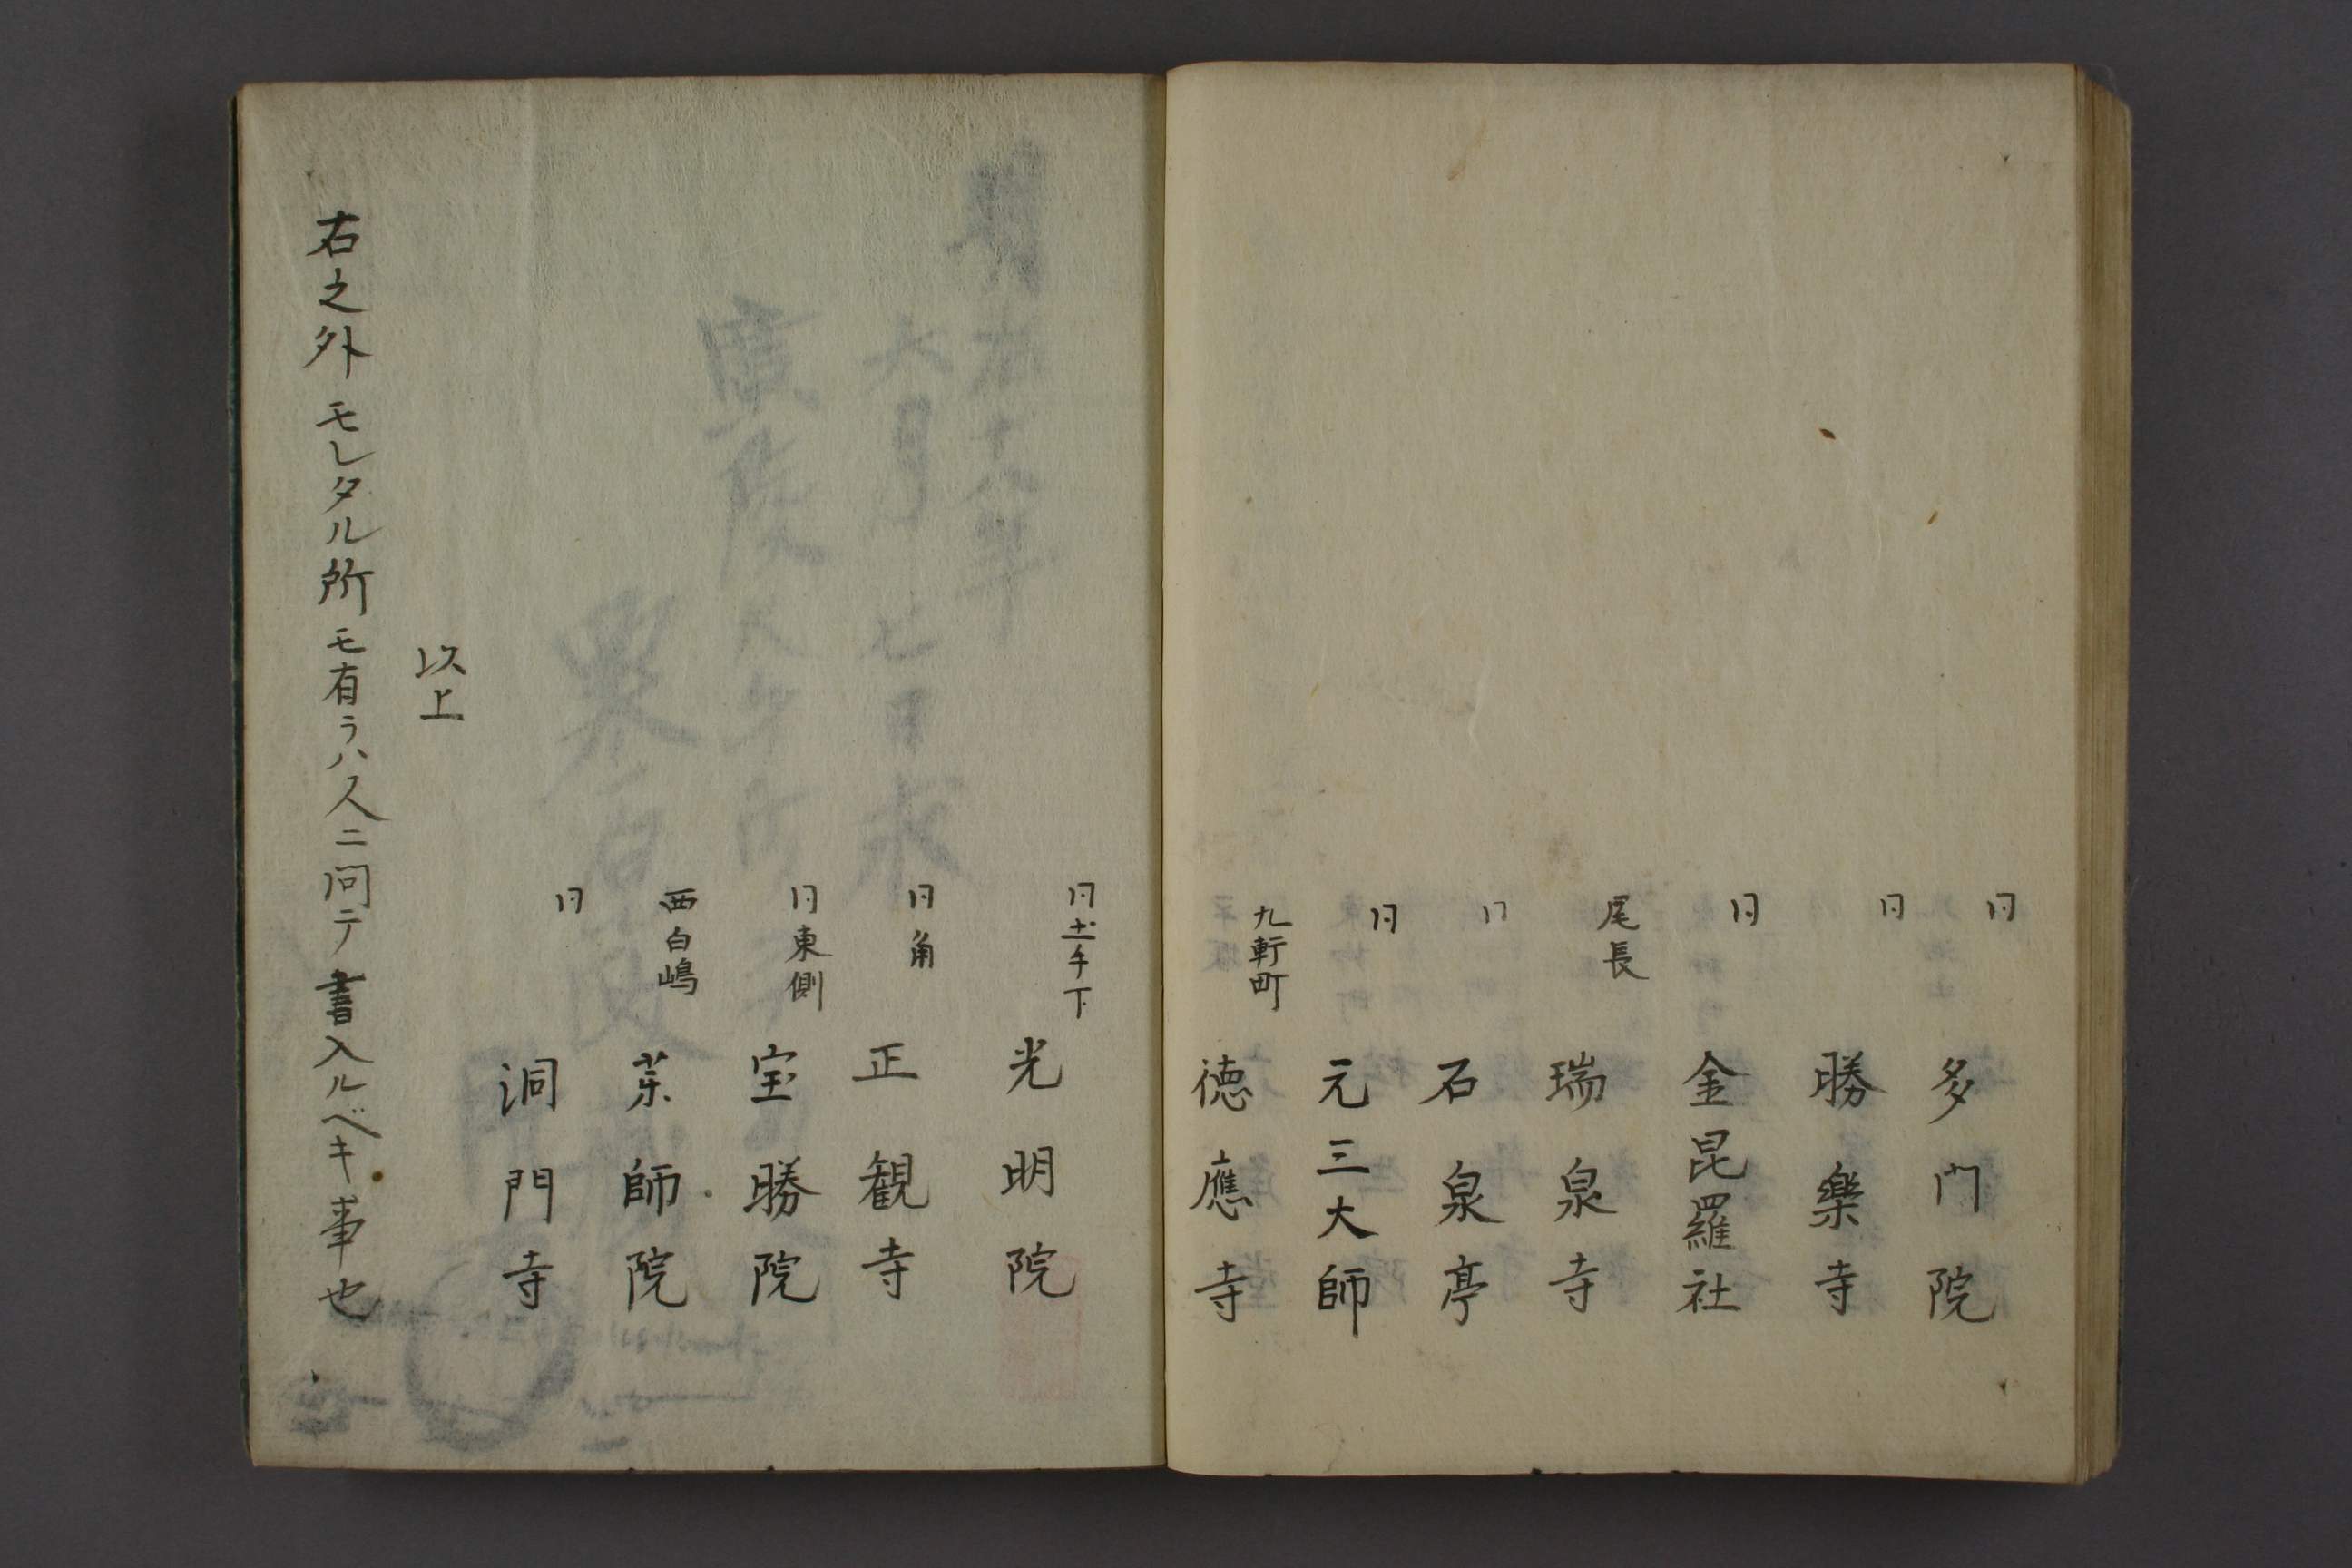 同 多門院
同 勝樂寺
同 金昆羅社
尾長 瑞泉寺
同 石泉亭
同 元三大師
九軒町 徳應寺
同土手下 光明院
同角 正観寺
同東側 宝勝院
西白嶋 薬師院
同 洞門寺
以上
右之外モレタル所モ有ラハ人ニ問テ書入ルベキ事也